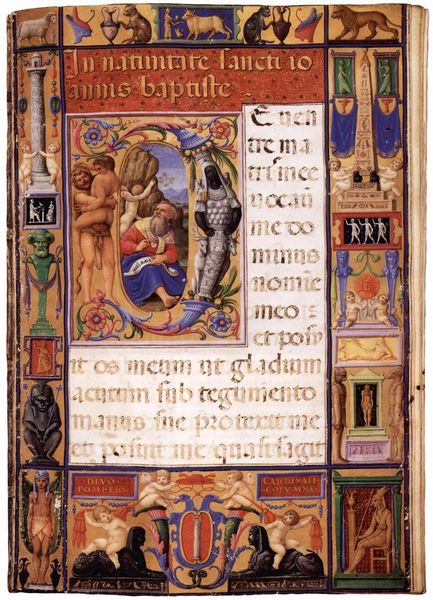 In nativitate sancti io
annis baptiste
E uen
tre ma
tris mee
uocauit
me do
minus
nomine
meo
et posu
it os meum ut gladium
acutum sub tegumento
manus sue protexit me
et posuit me quasi sagit
DIVO POMPEIO
CARDINALI COLVMNA